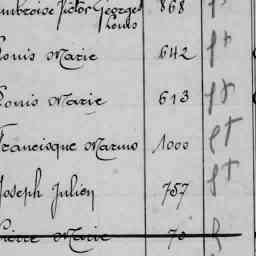 Ambroise Victor Georges 868
Louis
Louis Marie 642
Louis Marie 613
Francisque Marino 1000
Joseph Julien 757
Pierre Marie 70